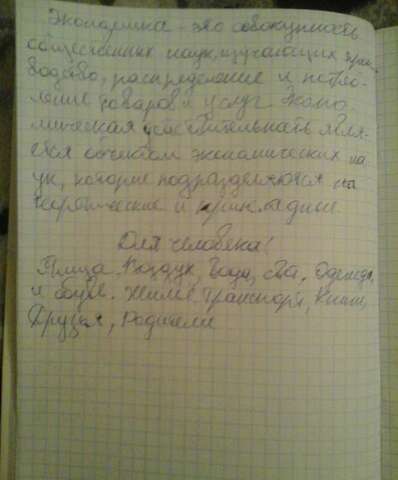 Экономика - это совокупность
общественных наук, изучающих произ-
водство, распределение и потреб-
ление товаров и услуг. Эконо-
мическая действительность явля-
ется объектом экономических на
ук, которые подразделяются на
теоретические и прикладные.
Для человека!
Пища. Воздух, Вода, Одежда,
и обувь. Жильё, транспорт, Книги,
Друзья, Родители